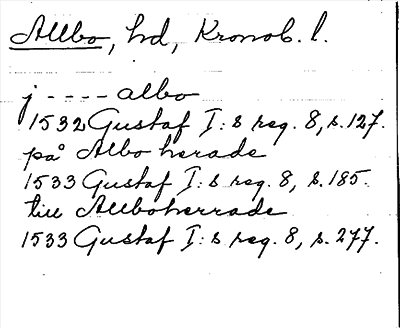 Allbo, hd, Kronob. l.
j - - - - albo
1532 Gustaf I:s reg. 8, s. 127.
på Albo herade
1533 Gustaf I:s reg. 8, s. 185.
till Allboherrade
1533 Gustaf I:s reg. 8, s. 277.